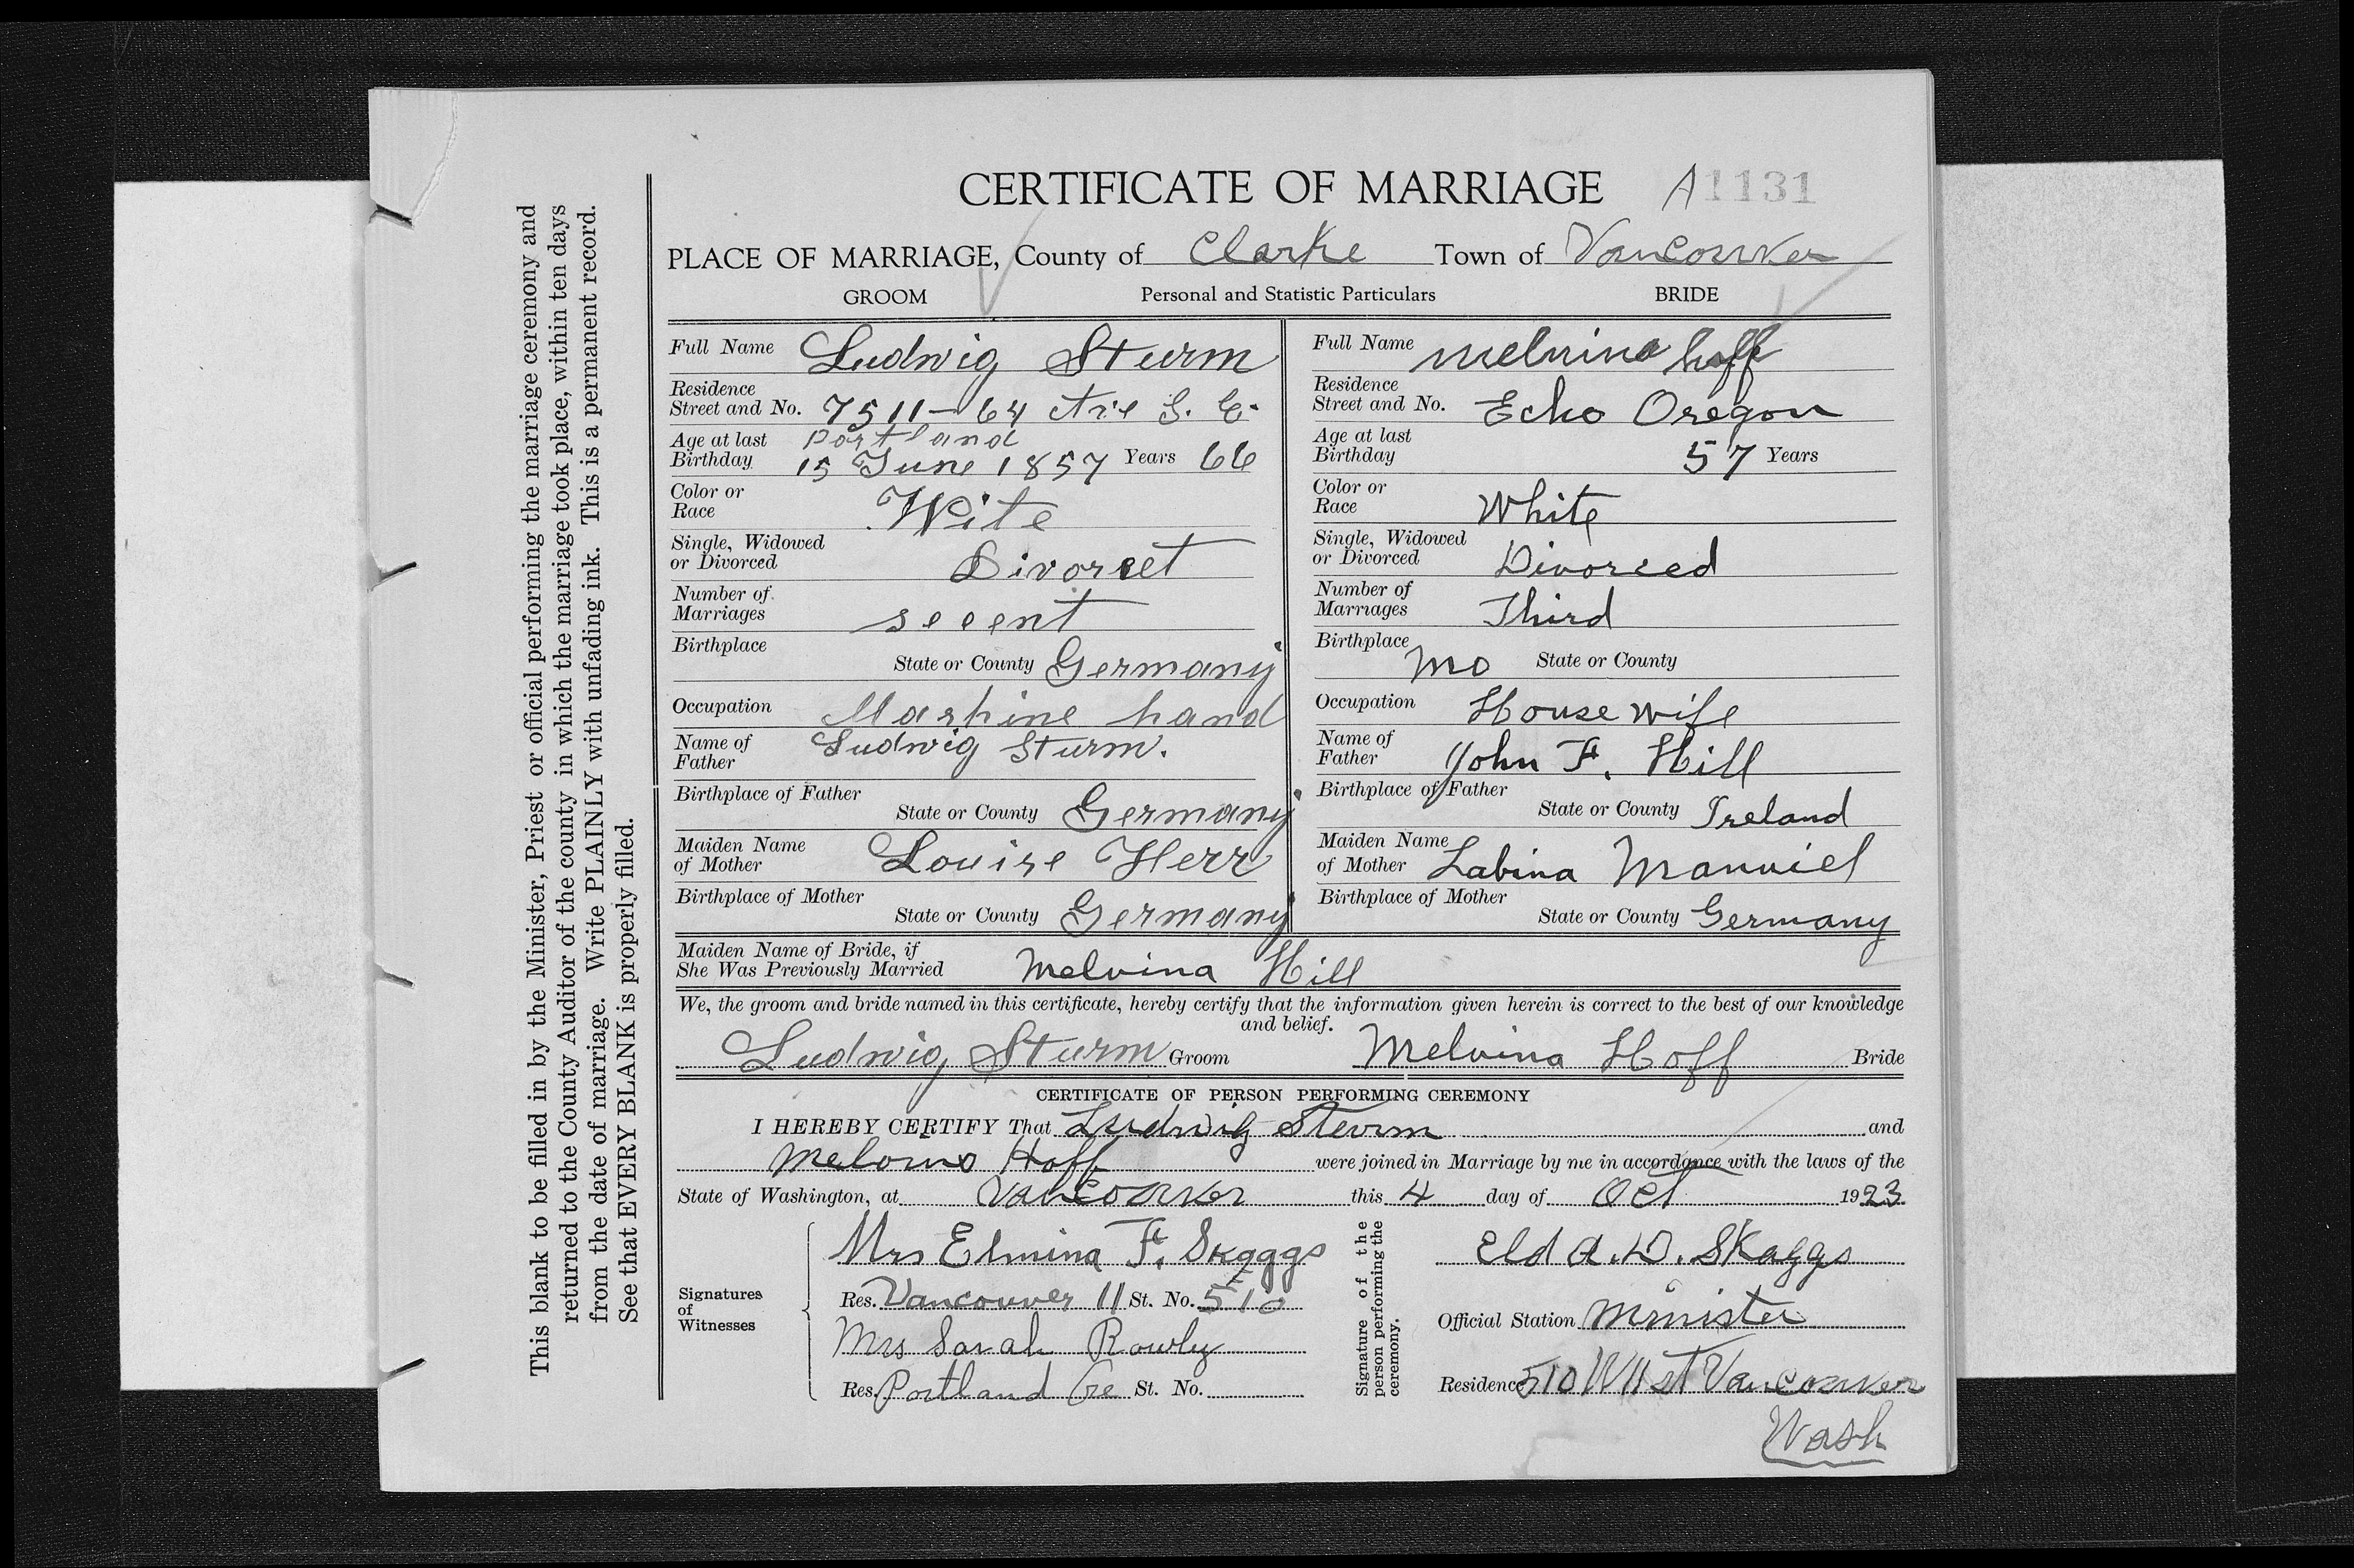 CERTIFICATE OF MARRIAGE A1131
PLACE OF MARRIAGE, County of Clarke Town of Vancouver
GROOM Personal and Statistic Particulars BRIDE
Full Name Ludwig Sturm
Residence
Street and No. 7511-64 Ave S. E.
Portland
Age at last
Birthday 15 June 1857 Years 66
Color or
Race Wite
Single, Widowed
or Divorced Divorcet
Number of
Marriages secent
Birthplace
State or County Germany
Occupation Mashine hand
Name of
Father Ludwig Sturm.
Birthplace of Father
State or County Germany
Maiden Name
of Mother Louise Herr
Birthplace of Mother
State or County Germany
Full Name Melvina hoff
Residence
Street and No. Echo Oregon
Age at last
Birthday 57 Years
Color or
Race White
Single, Widowed
or Divorced Divorced
Number of
Marriages Third
Birthplace
Mo State or County
Occupation House wife
Name of
Father John F. Hill
Birthplace of Father
State or County Ireland
Maiden Name
of Mother Labina Manuiel
Birthplace of Mother
State or County Germany
Maiden Name of Bride, if
She Was Previously Married Melvina Hill
We, the groom and bride named in this certificate, hereby certify that the information given herein is correct to the best of our knowledge
and belief.
Ludwig Sturm Groom Melvina Hoff Bride
CERTIFICATE OF PERSON PERFORMING CEREMONY
I HEREBY CERTIFY That Ludwig Sturm and
Melvina Hoff were joined in Marriage by me in accordance with the laws of the
State of Washington, at Vancouver this 4 day of Oct 1923
Signatures
of
Witnesses
Mrs Elmina F. Skaggs
Res. Vancouver 11 St. No. 510
Mrs Sarah Rowly
Res. Portland Ore St. No.
Signature of the
person performing the
ceremony.
Eld A. D. Skaggs
Official Station Minister
Residence 510 W 11 st Vancouver
Wash
This blank to be filled in by the Minister, Priest or official performing the marriage ceremony and
returned to the County Auditor of the county in which the marriage took place, within ten days
from the date of marriage. Write PLAINLY with unfading ink. This is a permanent record.
See that EVERY BLANK is properly filled.